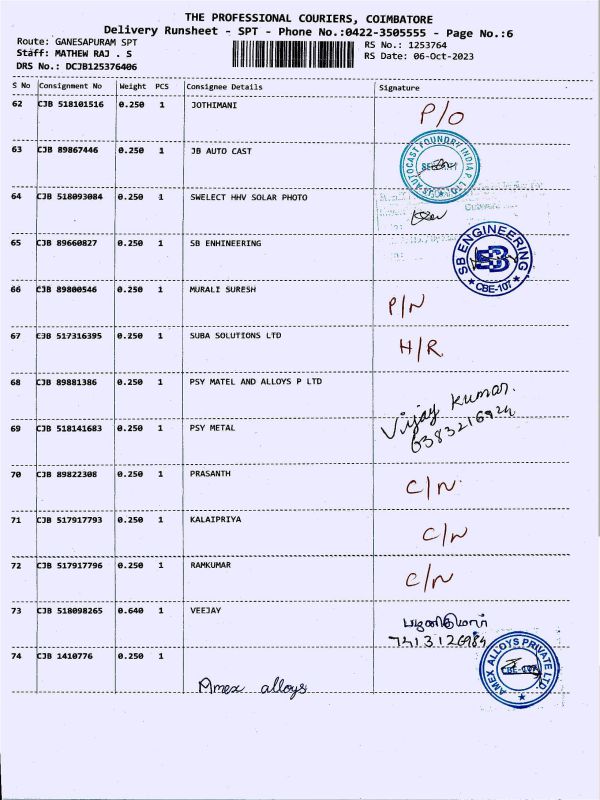 THE PROFESSIONAL COURIERS, COIMBATORE
Delivery Runsheet - SPT - Phone No.:0422-3505555 - Page No.:6
Route: GANESAPURAM SPT
RS No.: 1253764
Staff: MATHEW RAJ . S
RS Date: 06-Oct-2023
DRS No.: DCJB125376406
S No Consignment No Weight PCS Consignee Details Signature
62 CJB 518101516 0.250 1 JOTHIMANI P/O
63 CJB 89867446 0.250 1 JB AUTO CAST
AUTOCAST FOUNDRY INDIA P LTD
64 CJB 518093084 0.250 1 SWELECT HHV SOLAR PHOTO
65 CJB 89660827 0.250 1 SB ENHINEERING
SB ENGINEERING
SB
CBE-107
66 CJB 89800546 0.250 1 MURALI SURESH P/N
67 CJB 517316395 0.250 1 SUBA SOLUTIONS LTD H/R
68 CJB 89881386 0.250 1 PSY MATEL AND ALLOYS P LTD
Vijay Kumar.
6383216924
69 CJB 518141683 0.250 1 PSY METAL
70 CJB 89822308 0.250 1 PRASANTH C/N
71 CJB 517917793 0.250 1 KALAIPRIYA C/N
72 CJB 517917796 0.250 1 RAMKUMAR C/N
73 CJB 518098265 0.640 1 VEEJAY
பழனிகுமார்
7413126984
74 CJB 1410776 0.250 1
Amex alloys
AMEX ALLOYS PRIVATE LTD.
CBE-107